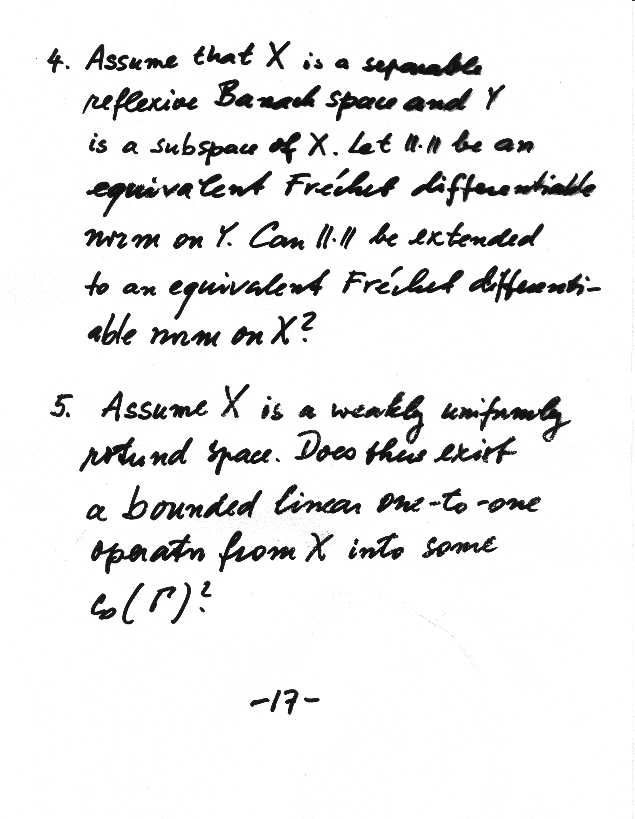 4. Assume that X is a separable
reflexive Banach space and Y
is a subspace of X. Let ||·|| be an
equivalent Fréchet differentiable
norm on Y. Can ||·|| be extended
to an equivalent Fréchet differenti-
able norm on X?
5. Assume X is a weakly uniformly
rotund space. Does there exist
a bounded linear one-to-one
operator from X into some
c₀(Γ)?
-17-